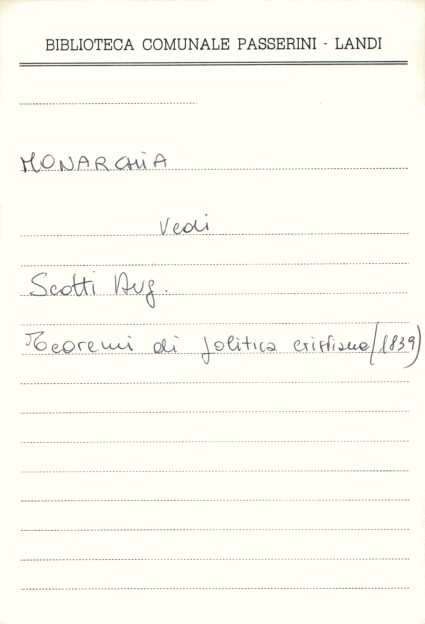 BIBLIOTECA COMUNALE PASSERINI - LANDI
MONARCHIA
Vedi
Scotti Aug.
Teoremi di politica cristiana (1839)